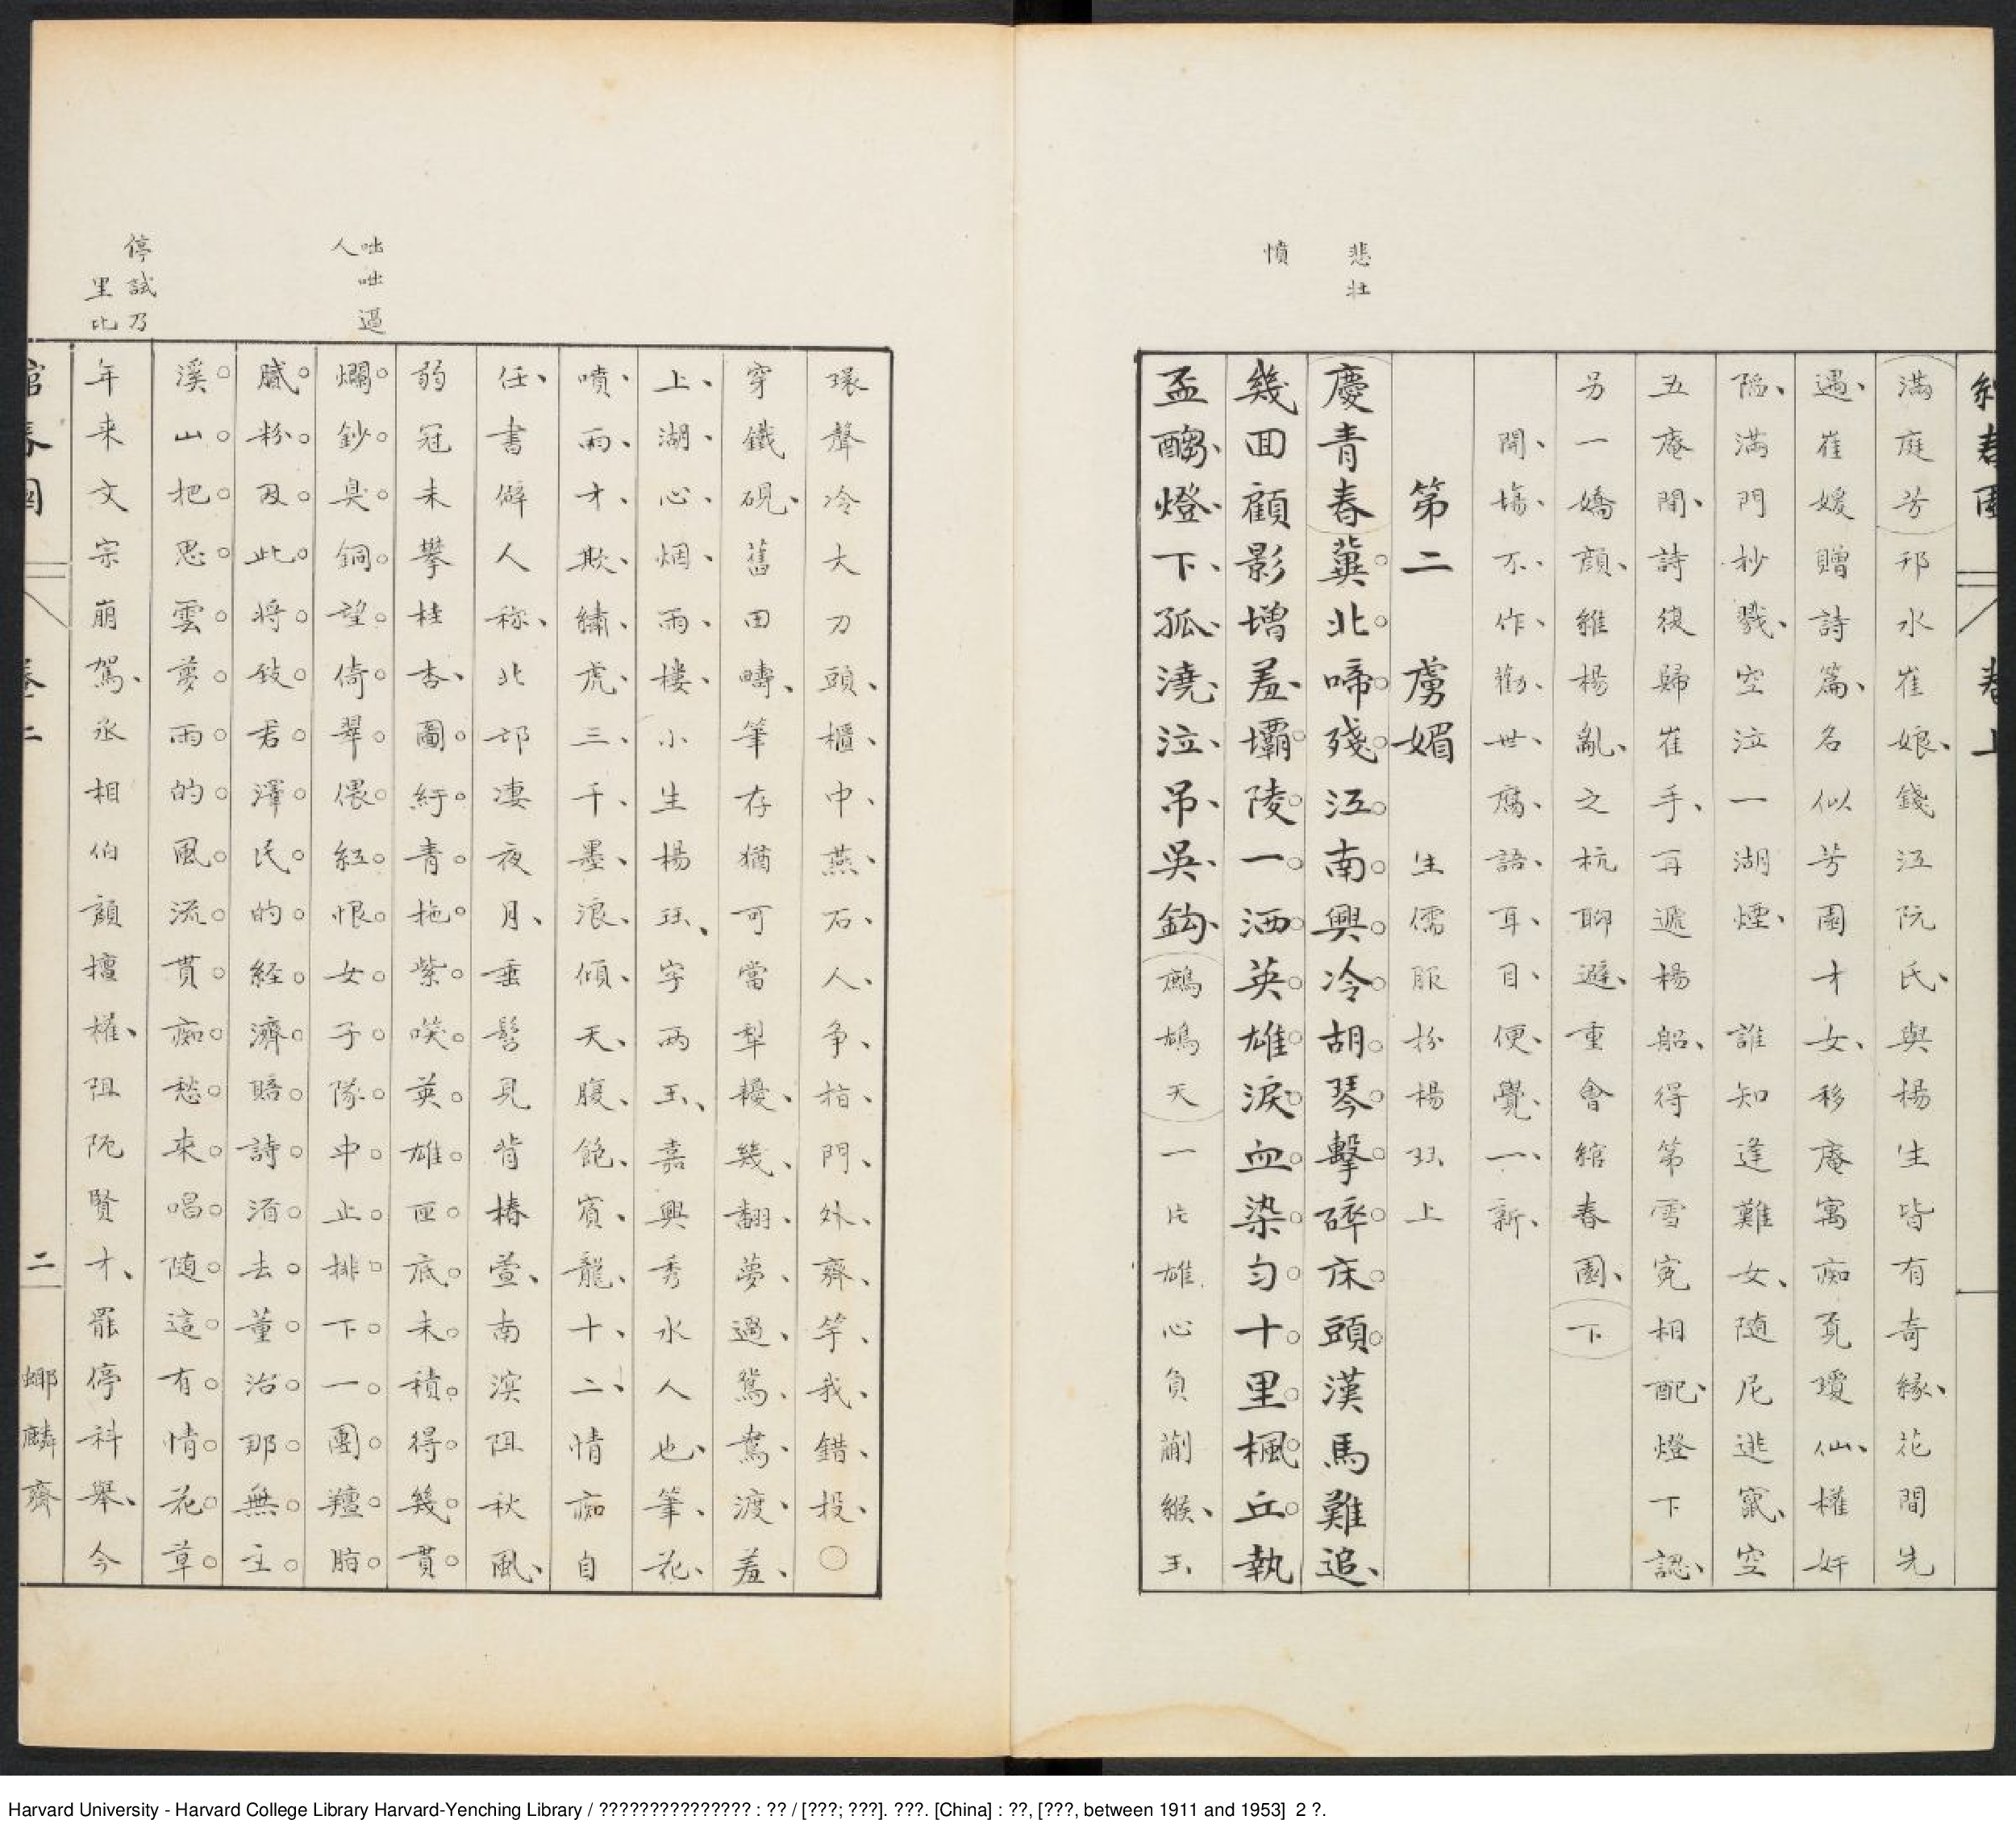 卷上
滿庭芳邗水崔娘、錢江阮氏、與楊生皆有奇緣、花間先
遇、崔媛贈詩篇、名似芳園才女、移庵寓痴覓瓊仙、權奸
隔、滿門抄戮、空泣一湖煙、 誰知逢難女、隨尼逃竄、空
五庵間、詩後歸崔手、再遞楊船、得第雪寃相配、燈下認、
另一嬌顏、維楊亂、之杭聊避、重會綰春園、下
開、場、不、作、勸、世、腐、語、耳、目、便、覺、一、新、
第二 虜媚 生儒服扮楊珏上
悲壯
慶青春冀北啼殘江南興冷胡琴擊碎床頭漢馬難追、
憤
幾回顧影增羞、壩陵一洒英雄淚血染勻十里楓丘執
盃酶、燈、下、孤、澆、泣、吊、吳、鈎、鷓鴣天一片雄心負蒯緱、玉
環聲冷大刀頭、櫃、中、燕、石、人、爭、拍、門、外、齊、竽、我、錯、投、○
穿鐵硯、舊田疇、筆存猶可當犁耰、幾、翻、夢、過、鴛、鴦、渡、羞、
上、湖、心、烟、雨、樓、小生楊珏、字兩玉、嘉興秀水人也、筆、花、
噴、雨、才、欺、繡、虎、三、千、墨、浪、傾、天、腹、飽、賓、龍、十、二、情痴自
任、書僻人称、北邙凄夜月、垂髫見背椿萱、南濱阻秋風、
咄咄逼
人
弱冠未攀桂杏、圖紆青拖紫唉英雄匣底未積得幾貫
爛鈔臭銅望倚翠偎紅恨女子隊中止排下一團羶脂
膩粉及此將致君澤民的經濟賠詩酒去董治那無主
溪山把思雲夢雨的風流貫痴愁來唱隨這有情花草
停試乃
里比
年来文宗崩駕、丞相伯顏擅權、阻阨賢才、罷停科舉、今
綰春園 卷上 二 螂麟齋